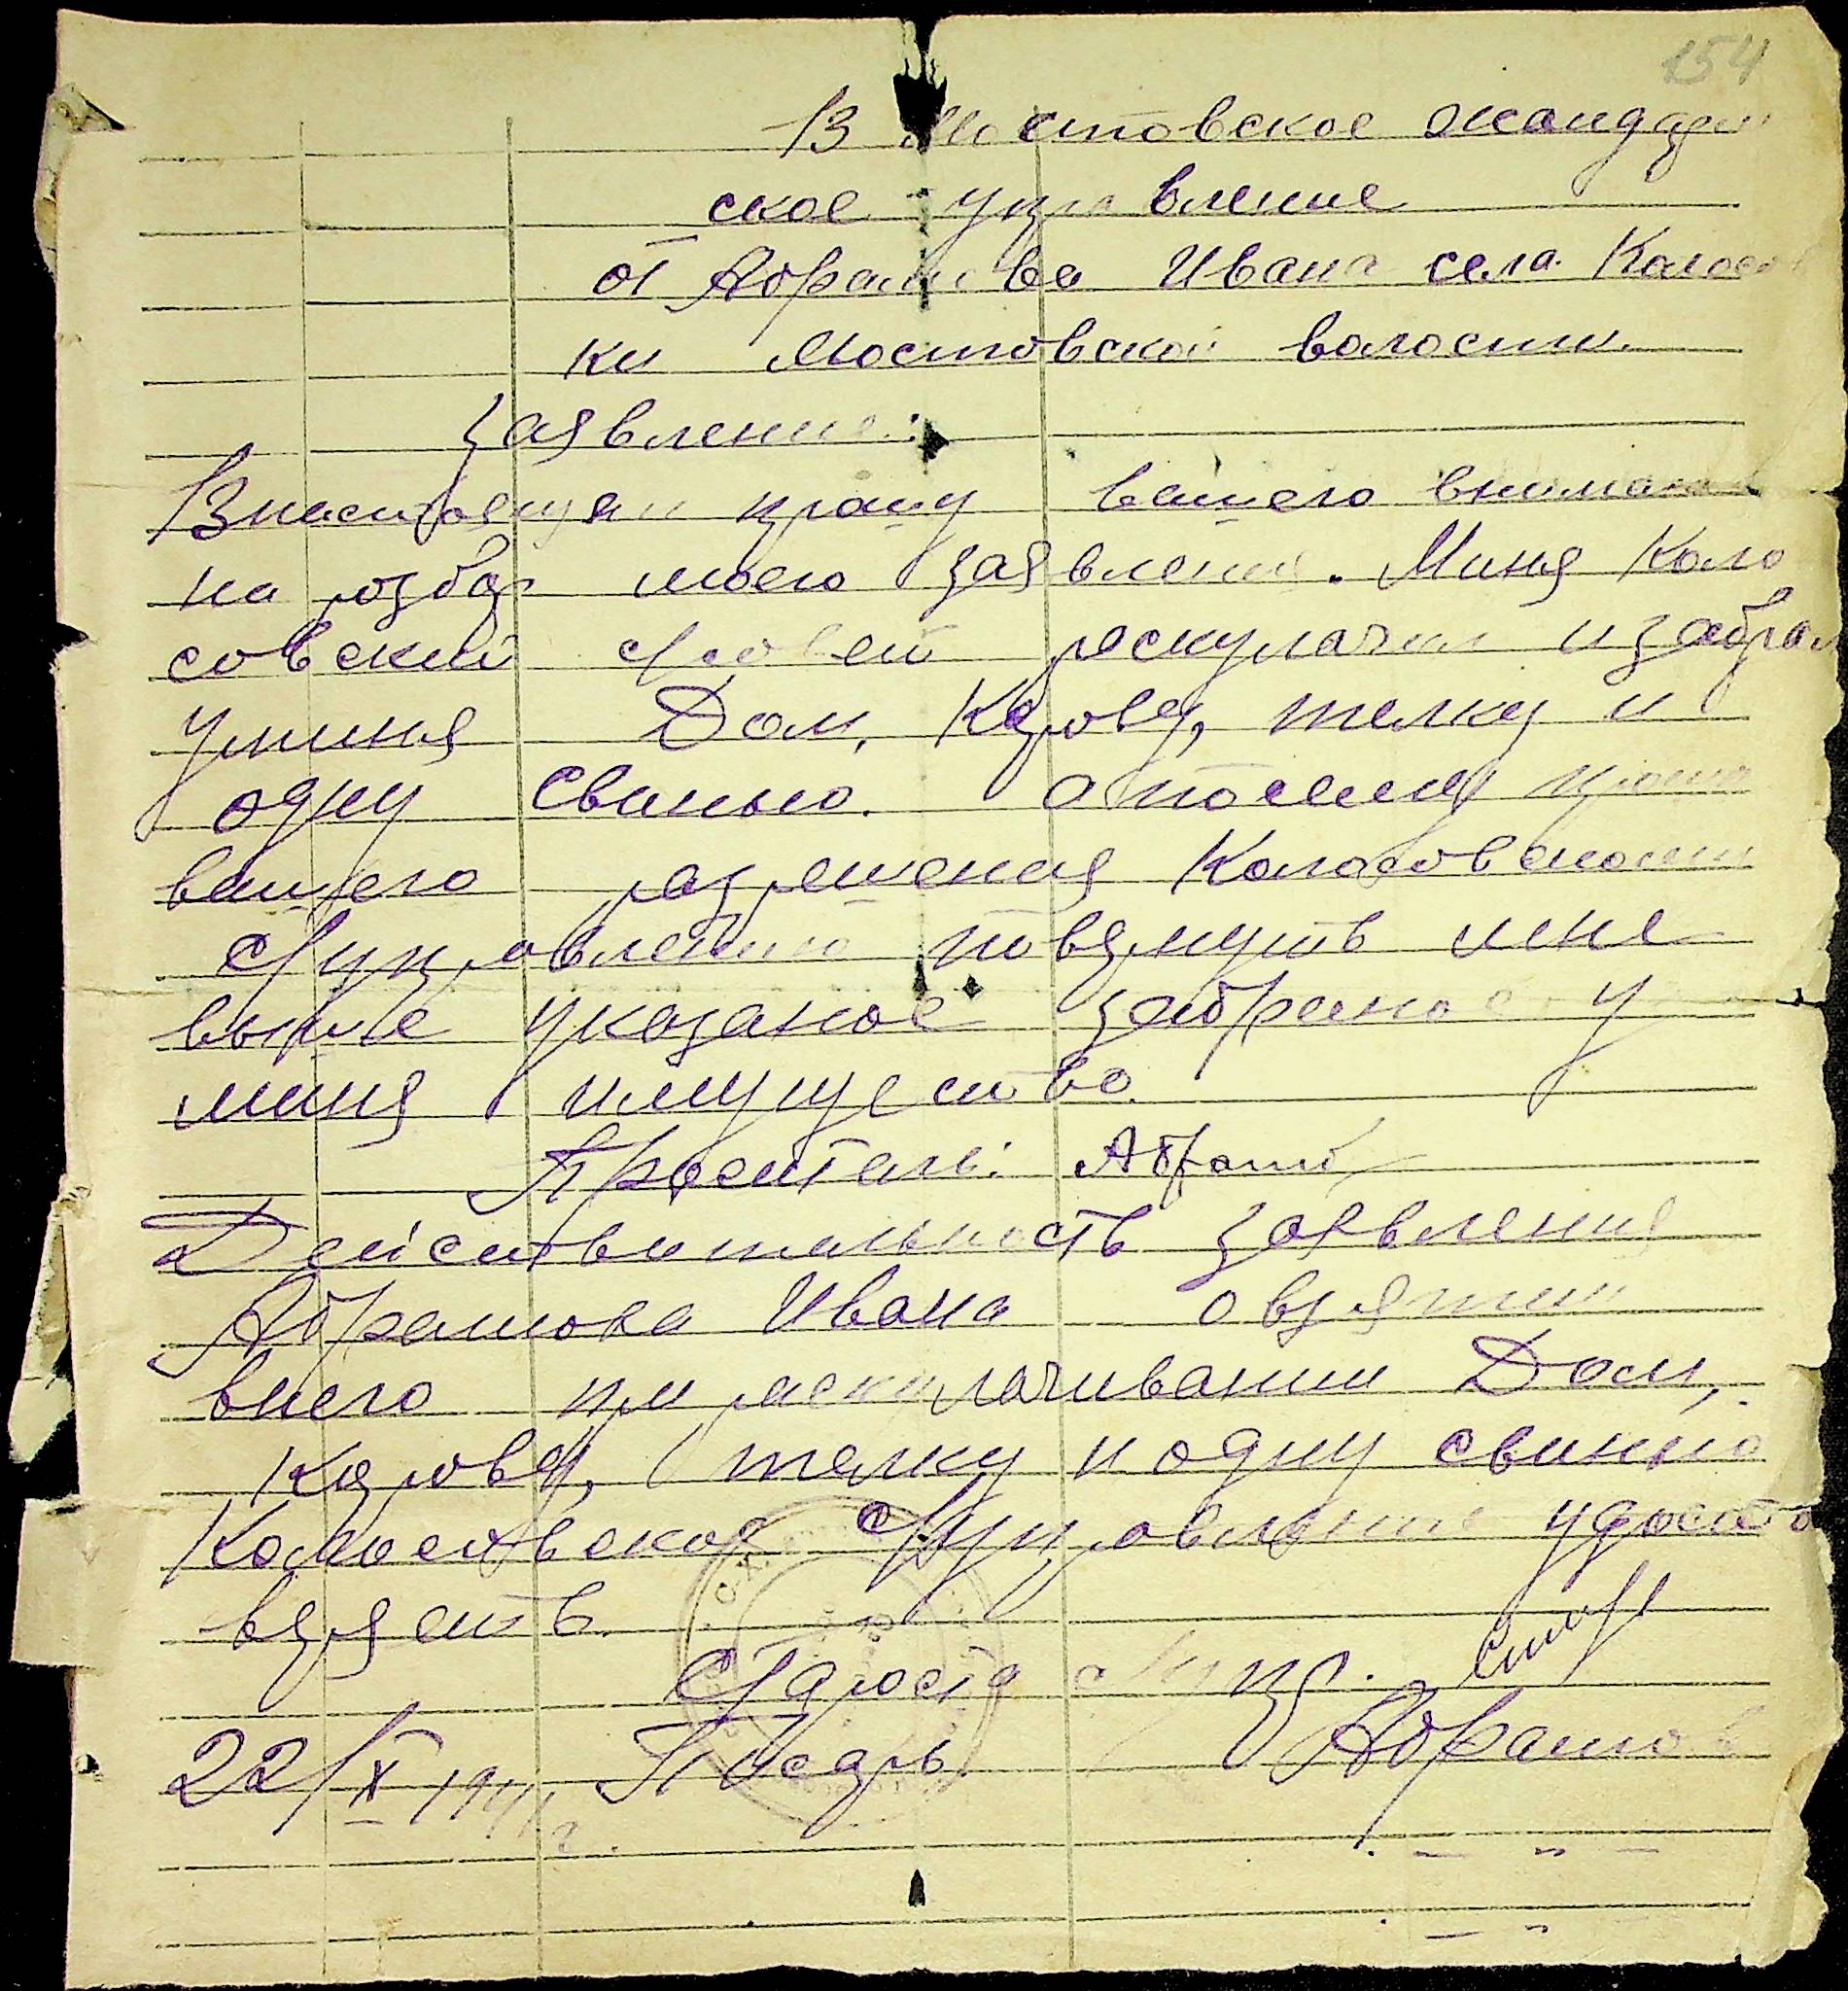 154
В Мостовское жандарм
ское управление
от Абрамова Ивана села Колосов
ки Мостовской волости
Заявление:
Внастоящем прошу вашего внимания
на розбор моего заявления. Миня Коло
совский с/совет раскулачил изабрал
уминя Дом, Корову, телку и
одну свинью. Опосему прошу
вашего разрешения Колосовскому
с/управлению повернуть мне
выше указаное забраное у
миня имущество.
Проситель: Абрамо
Действительность заявления
Абрамова Ивана овзятии
внего при раскулачивании Дом,
Корову, телку и одну свинью
Колосовское с/управление удосто
верять.
Староста с/упр.
22/X 1941 г. Писарь Абрамов